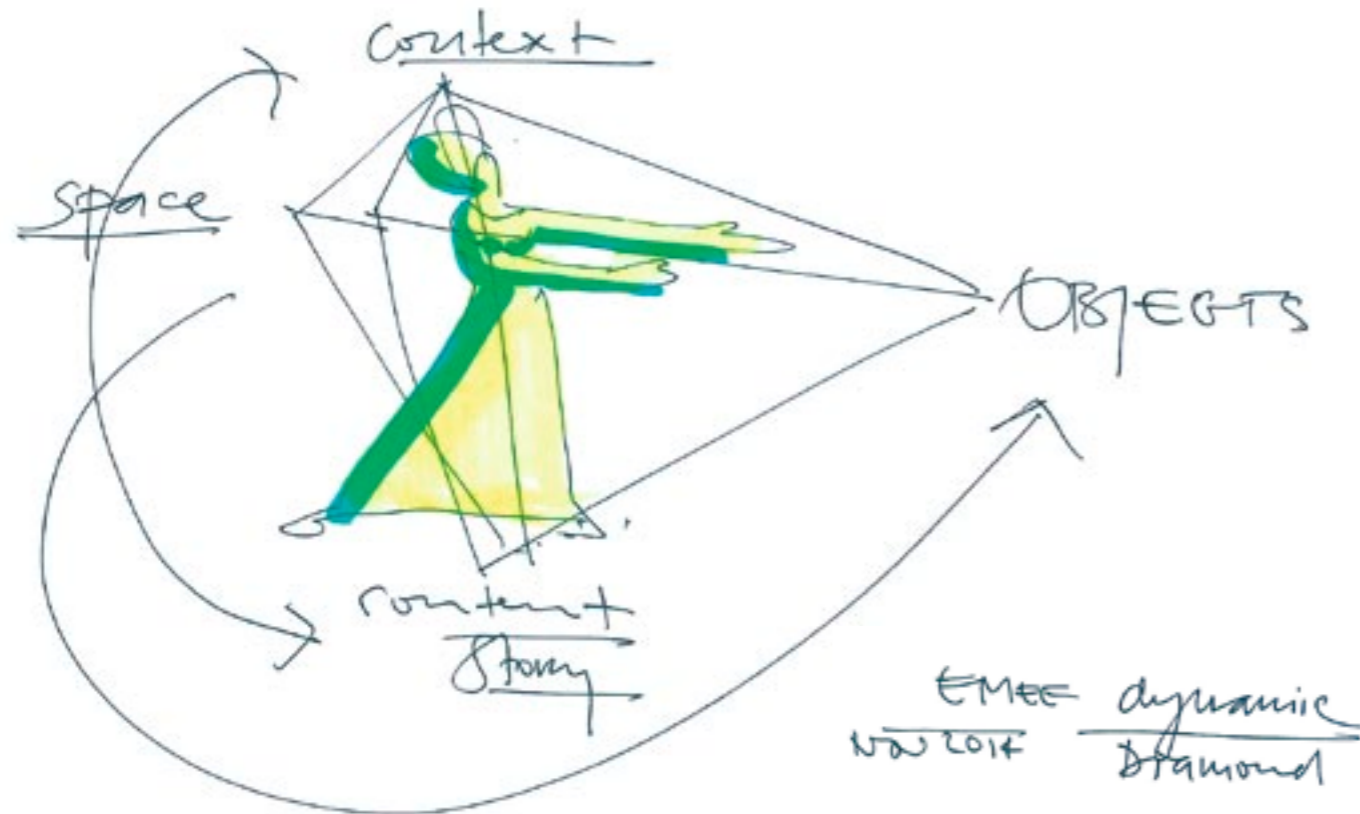 context
space
OBJECTS
content
Story
EMEE dynamic
Nov 2014 Diamond